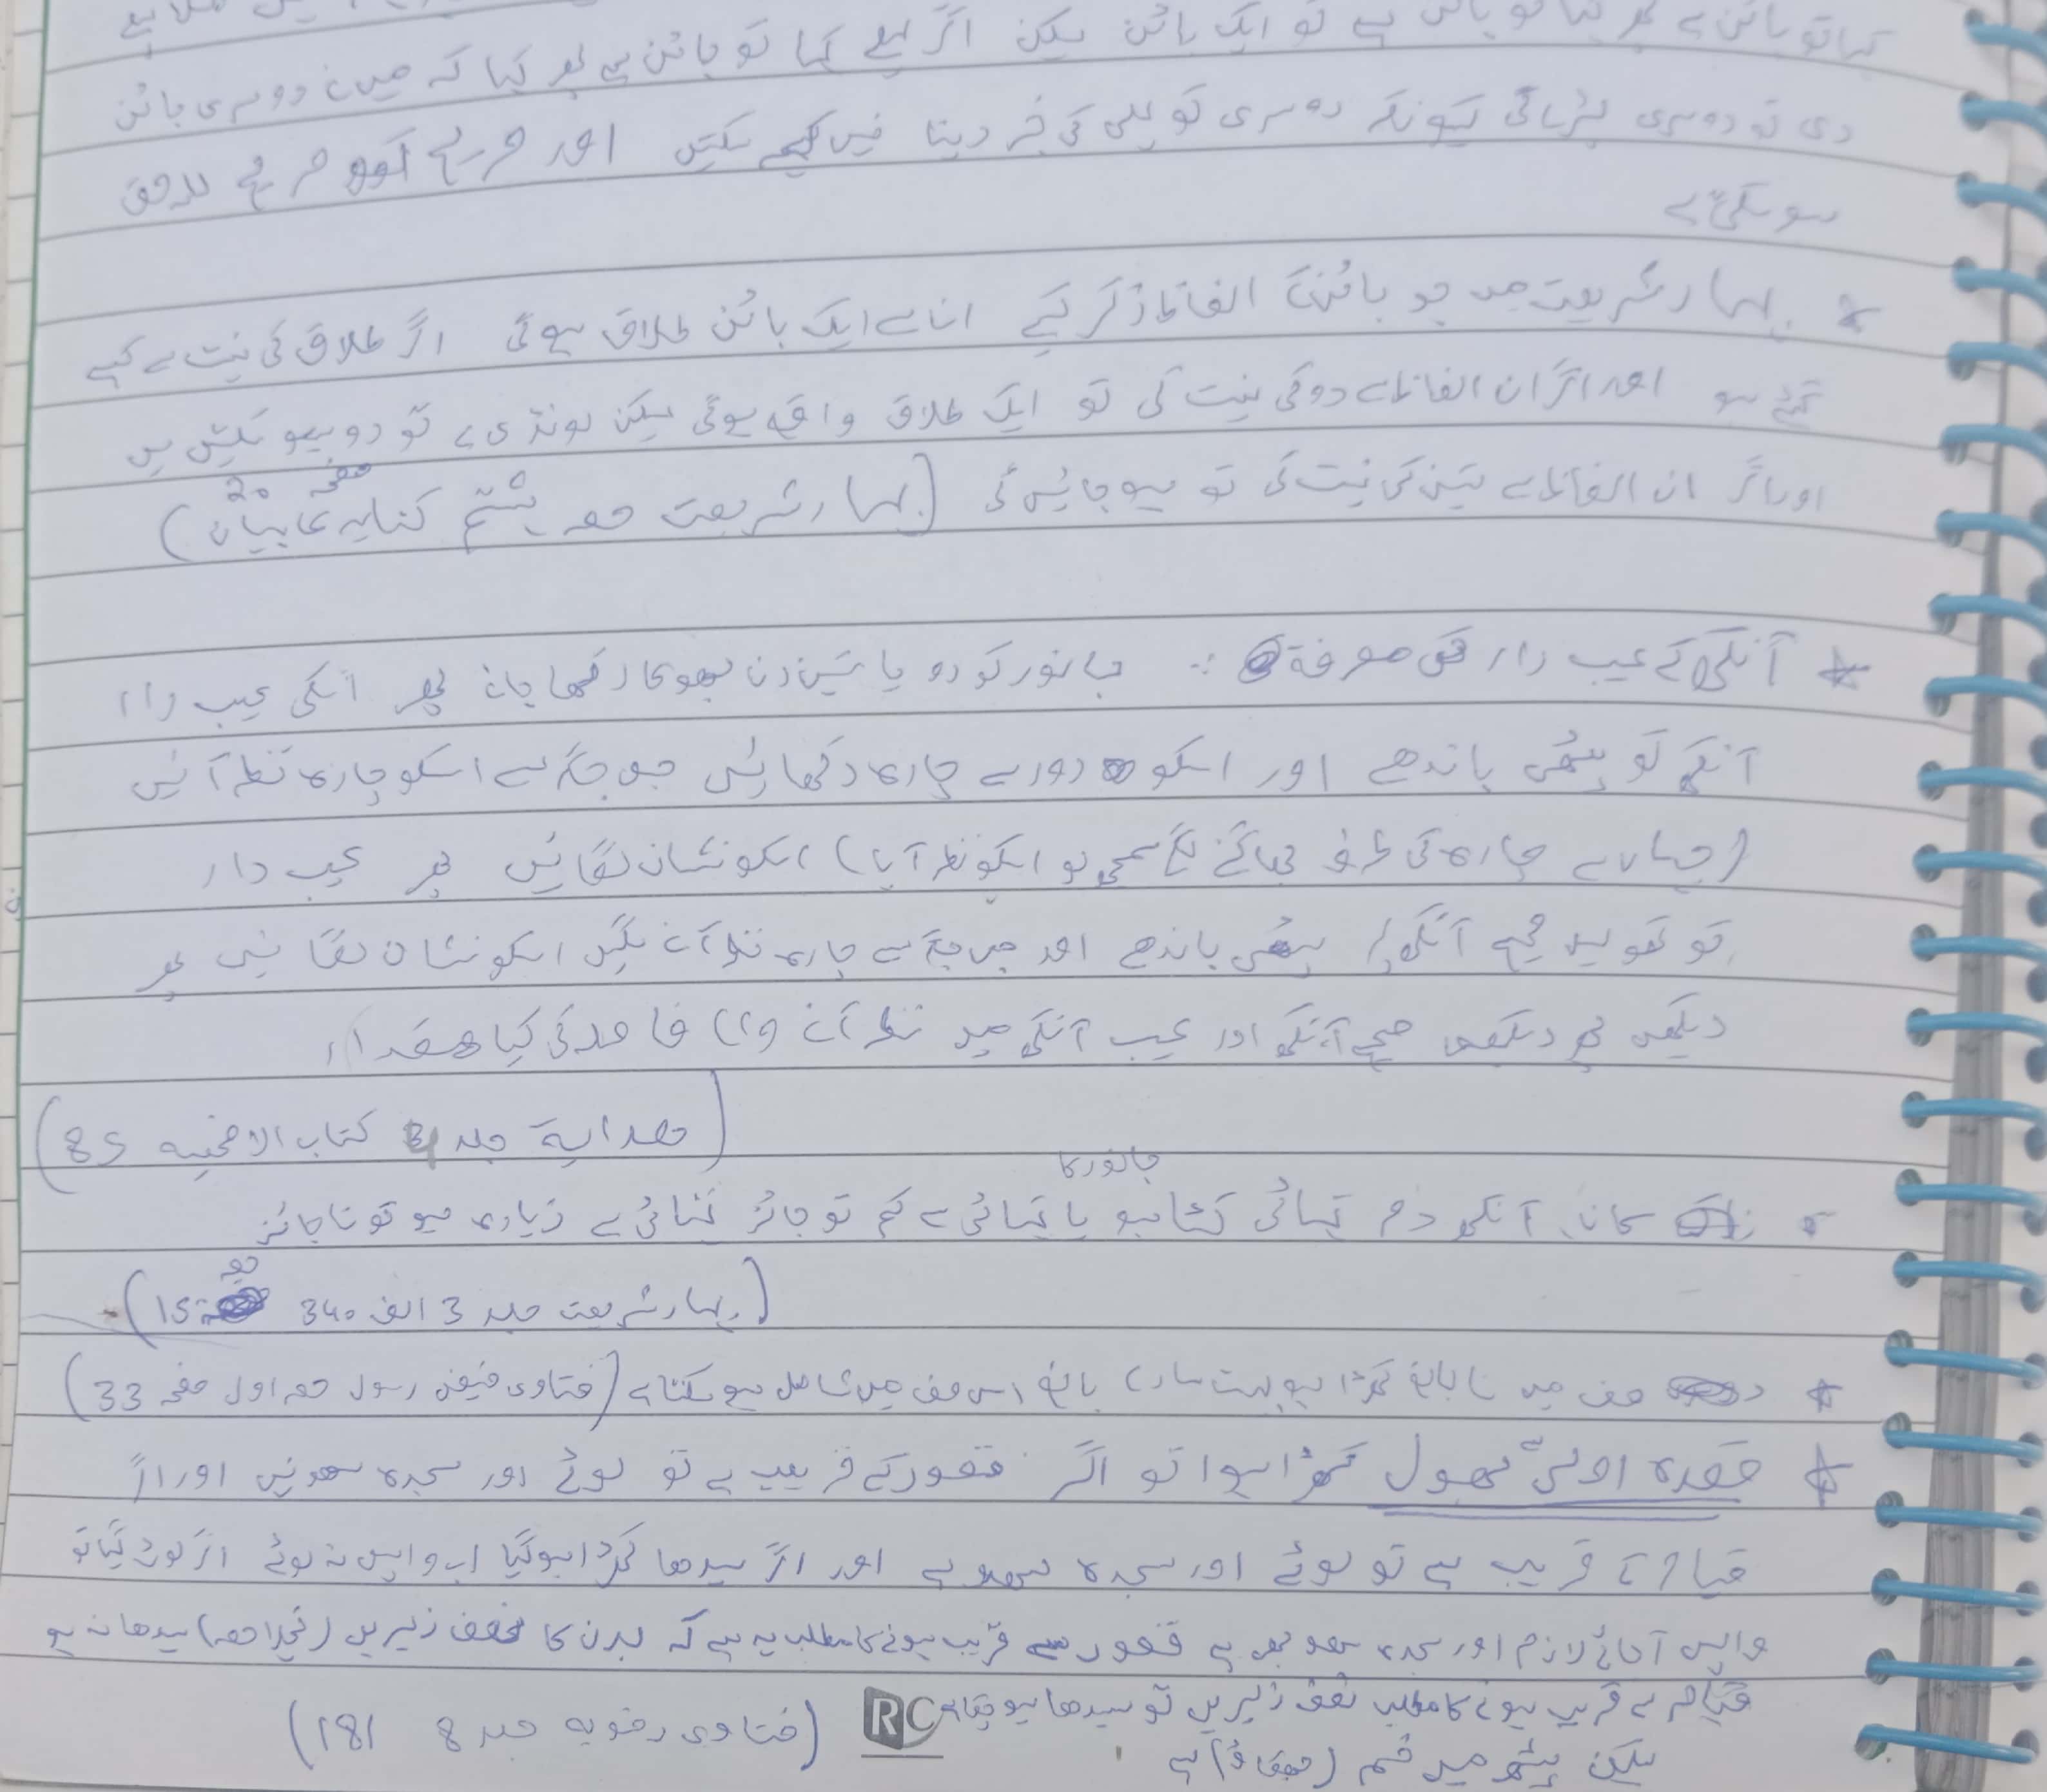 کہا تو بائن ہے پھر کہا تو بائن ہے تو ایک بائن لیکن اگر پہلے کہا تو بائن ہے پھر کہا کہ میں نے دوسری بائن
دی تو دوسری پڑ جائے گی کیونکہ دوسری کو پہلی کی خبر دینا نہیں کہہ سکتیں اور صریح کو صریح لاحق
ہو سکتی ہے
* بہار شریعت میں جو بائن کے الفاظ ذکر کیے ان سے ایک بائن طلاق ہو گی اگر طلاق کی نیت سے کہے
گئے ہو اور اگر ان الفاظ سے دو کی نیت کی تو ایک طلاق واقع ہوگی لیکن لونڈی ہے تو دو ہو سکتیں ہیں
اور اگر ان الفاظ سے تین کی نیت کی تو ہو جائیں گی (بہار شریعت حصہ ہشتم کنایہ کا بیان صفحہ 20)
* آنکھ کے عیب دار کی معرفۃ :: جانور کو دو یا تین دن بھوکا رکھا جائے پھر اسکی عیب دار
آنکھ کو پٹی باندھے اور اسکو دور سے چارہ دکھائیں جس جگہ سے اسکو چارہ نظر آئیں
(جہاں سے چارہ کی طرف بھاگنے لگے سمجھو اسکو نظر آیا) اسکو نشان لگائیں پھر عیب دار
کو کھولیں صحیح آنکھ پر پٹی باندھے اور جس جگہ سے چارہ نظر آنے لگیں اسکو نشان لگائیں پھر
دیکھیں پھر دیکھیں صحیح آنکھ اور عیب آنکھ میں نظر آنے والا فاصلہ کی کیا مقدار
(ھدایۃ جلد 4 کتاب الاضحیہ 85)
* کان، آنکھ دم تہائی کٹا ہو یا تہائی سے کم تو جائز تہائی سے زیادہ ہو تو ناجائز
جانور کا
(بہار شریعت جلد 3 الف 340 حصہ 15)
* صف میں نابالغ کھڑا ہو بہت سارے بالغ اس صف میں شامل ہو سکتا ہے (فتاوی فیض رسول حصہ اول صفحہ 33)
* قعدہ اولیٰ بھول کھڑا ہوا تو اگر قعود کے قریب ہے تو لوٹے اور سجدہ سھو نہیں اور اگر
قیام کے قریب ہے تو لوٹے اور سجدہ سھو ہے اور اگر سیدھا کھڑا ہو گیا اب واپس نہ لوٹے اگر لوٹ گیا تو
واپس آنا لازم اور سجدہ سھو بھی ہے قعود سے قریب ہونے کا مطلب یہ ہے کہ بدن کا نصف زیریں (نچلا حصہ) سیدھا نہ ہو
قیام سے قریب ہونے کا مطلب نصف زیریں تو سیدھا ہو چکا ہے RC (فتاوی رضویہ جلد 8 181)
لیکن پیٹھ میں خم (جھکاؤ) ہے